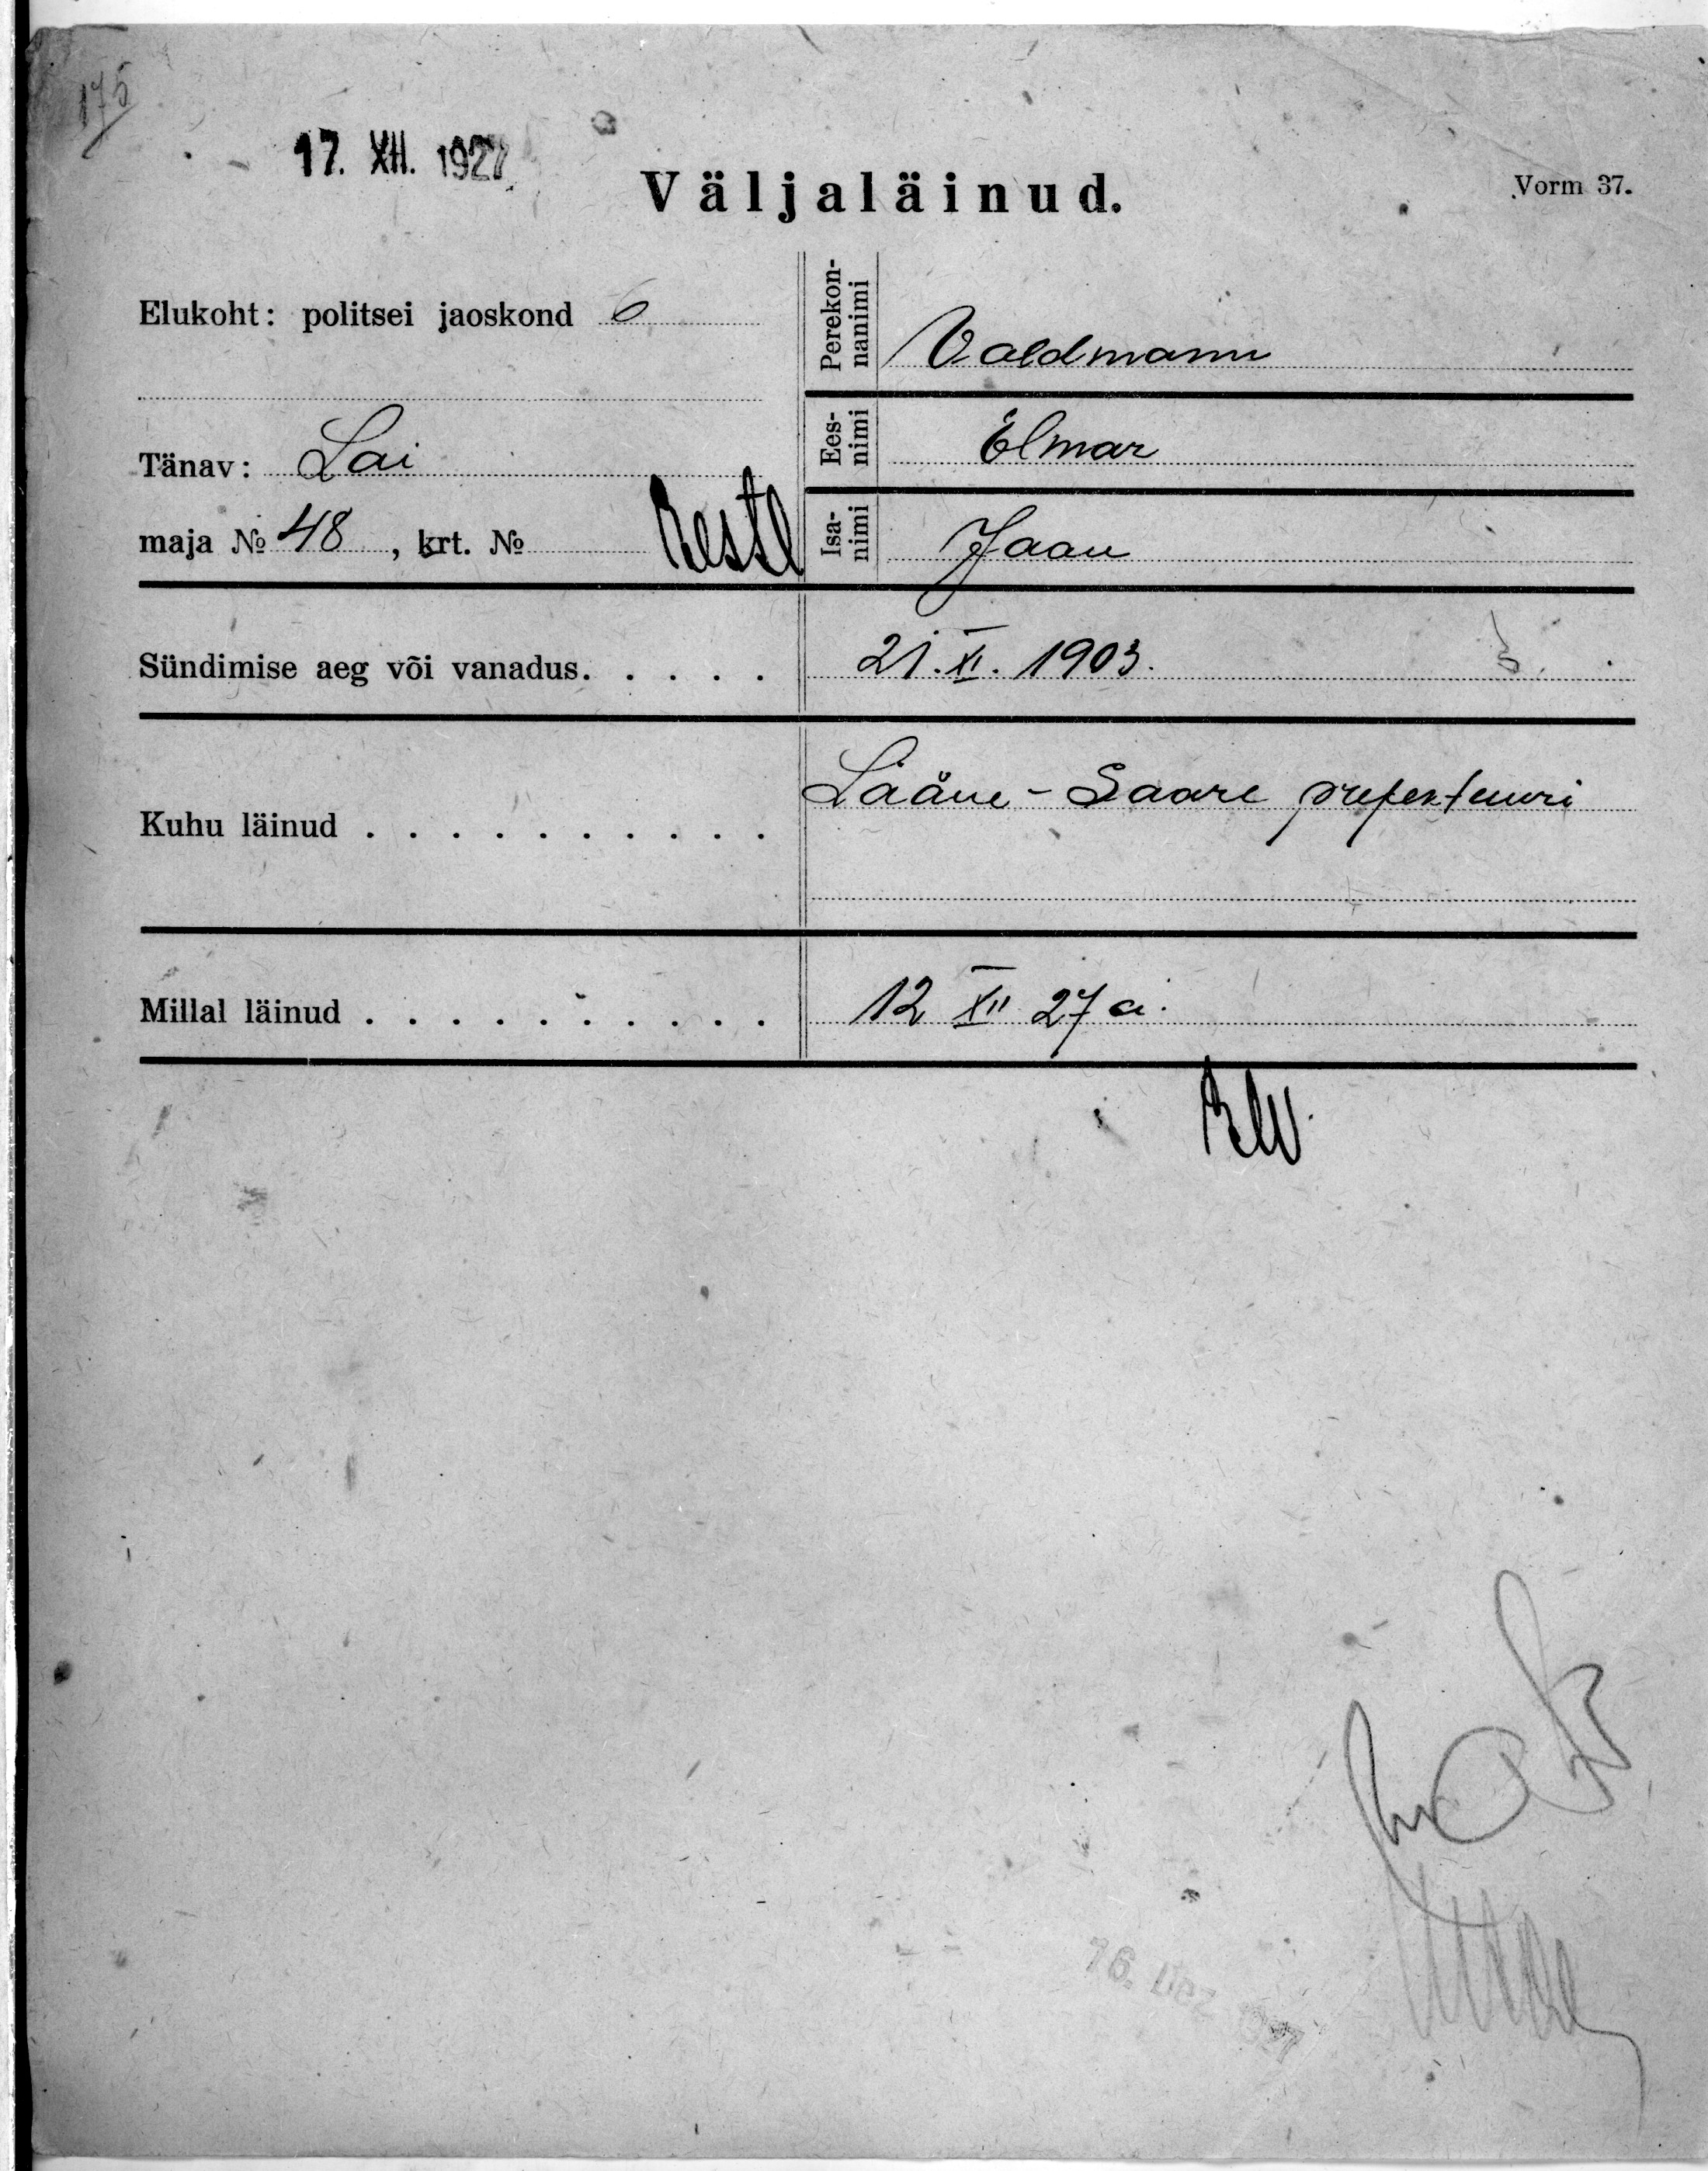 175
17. XII. 1927
Väljaläinud.
Vorm 37.
Elukoht: politsei jaoskond 6
Perekon-
nanimi
Valdmann
Tänav: Lai
Ees-
nimi
Elmar
maja № 48, krt. №
Isa-
nimi
Jaan
Sündimise aeg või vanadus. . . . .
21. XI. 1903.
Kuhu läinud . . . . . . . . . .
Lääne-Saare prefektuuri
Millal läinud . . . . . . . . . .
12 XII 27 a.
16. Dez 1927